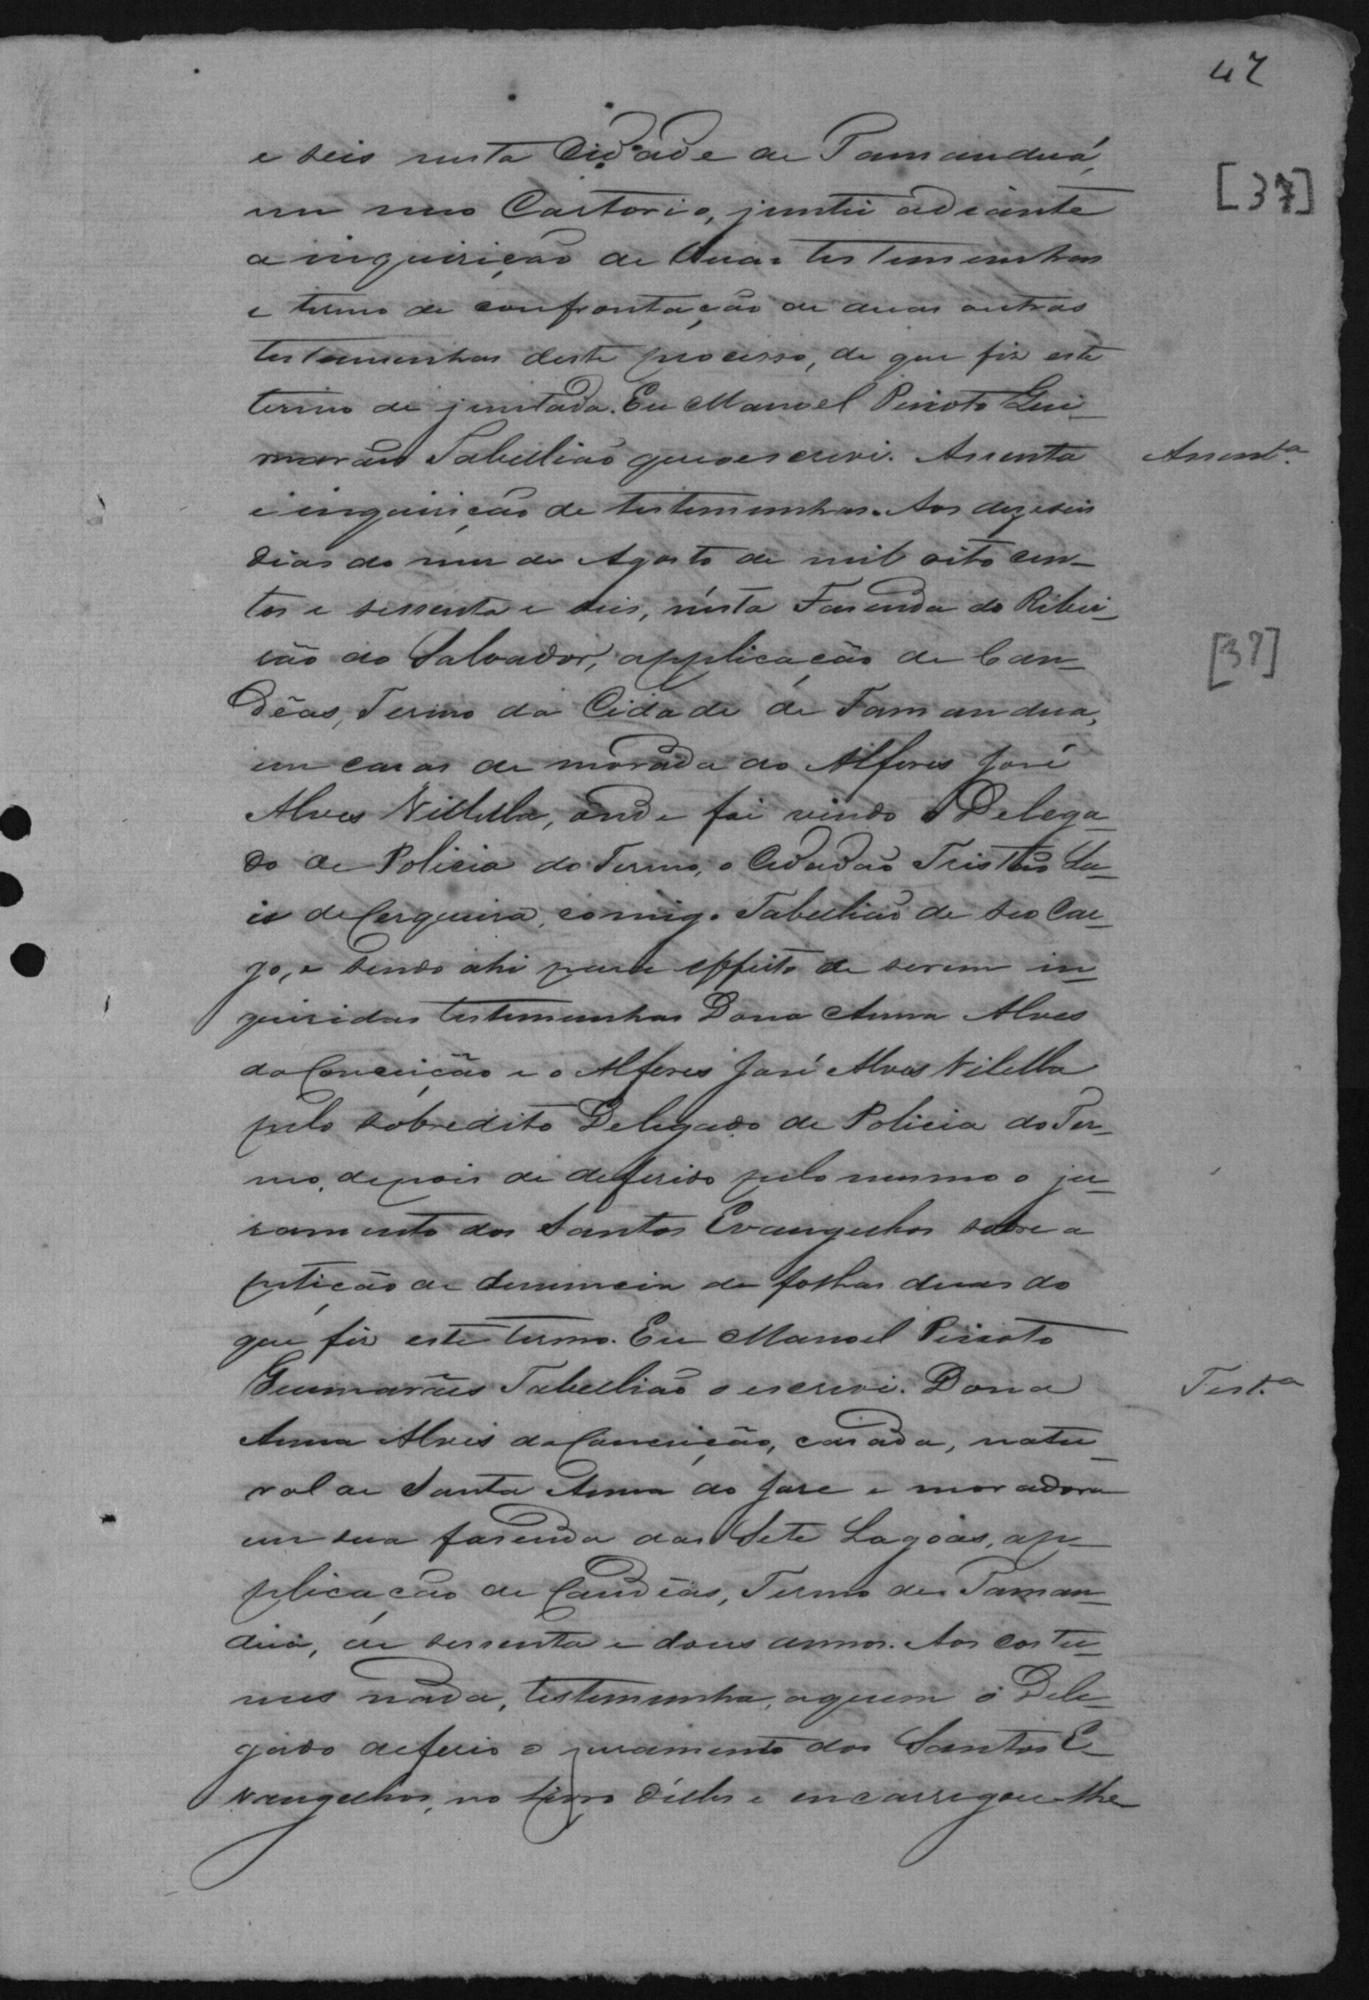 47
[37]
e seis nesta Cidade de Tamanduá,
em meo Cartorio, juntei adiante
a inquirição de duas testemunhas
e termo de confrontação de duas outras
testemunhas deste processo, de que fiz este
termo de juntada. Eu Manoel Peixoto Gui-
marães Tabellião que o escrevi. Assenta
Assent.a
e inquirição de testemunhas. Aos dezeseis
dias do mez de Agosto de mil oito cen-
tos e sessenta e seis, nésta Fasenda do Ribei-
rão do Salvador, applicação de Can-
[37]
dêas, Termo da Cidade de Tamandua,
em casas de morada do Alferes José
Alves Villella, onde foi vindo o Delega-
do de Policia do Termo, o Cidadão Tristão Lu-
is de Cerqueira, comigo Tabellião de seo Car-
go, e sendo ahi para effeito de serem in-
queridas testemunhas Dona Anna Alves
da Conceição e o Alferes José Alves Vilella
pelo sobredito Delegado de Policia do Ter-
mo, depois de deferido pelo mesmo o ju-
ramento dos Santos Evangelhos sobre a
petição de denuncia de folhas duas do
que fiz este termo. Eu Manoel Peixoto
Guimarães Tabellião o escrevi. Dona
Test.a
Anna Alves da Conceição, casada, natu-
ral de Santa Anna do Jare e moradora
em sua fasenda das Sete Lagoas, ap-
plicação de Candêas, Termo de Taman-
dua, de sessenta e dous annos. Aos costu-
mes nada, testemunha, aquem o Dele-
gado deferio o juramento dos Santos E-
vangelhos, no livro délles e encarregou-lhe